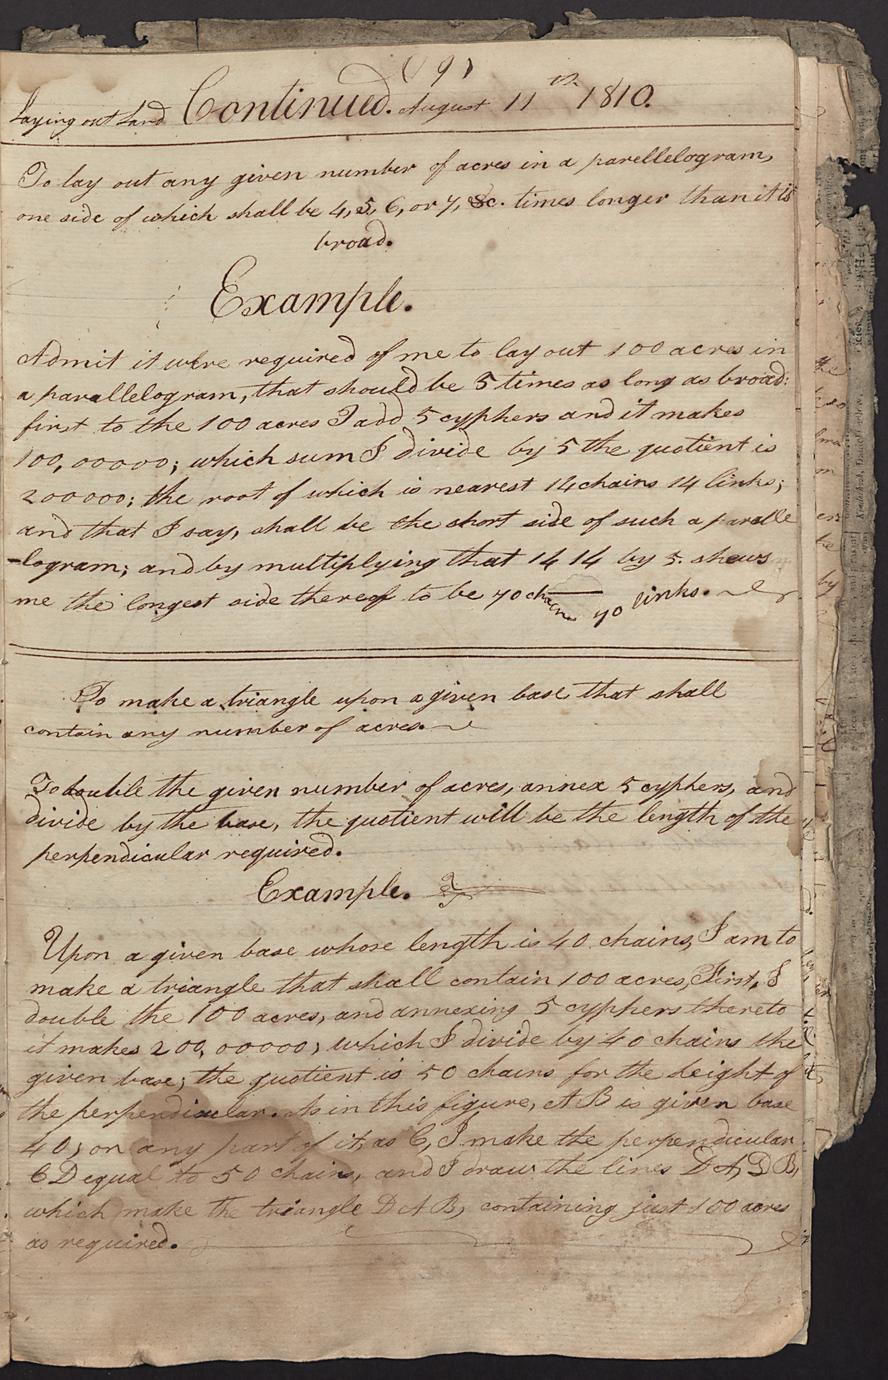 (9)
Laying out Land Continued. August 11th 1810.
To lay out any given number of acres in a parellelogram,
one side of which shall be 4, 5, 6, or 7, &c. times longer than it is
broad.
Example.
Admit it were required of me to lay out 100 acres in
a parallelogram, that should be 5 times as long as broad:
first to the 100 acres I add 5 cyphers and it makes
100,00000; which sum I divide by 5 the quotient is
200000; the root of which is nearest 14 chains 14 links;
and that I say, shall be the short side of such a paralle
-logram; and by multiplying that 14 14 by 5. shews
me the longest side thereof to be 70 chains 70 links.
To make a triangle upon a given base that shall
contain any number of acres.
To double the given number of acres, annex 5 cyphers, and
divide by the base, the quotient will be the length of the
perpendicular required.
Example.
Upon a given base whose length is 40 chains, I am to
make a triangle that shall contain 100 acres, First, I
double the 100 acres, and annexing 5 cyphers thereto
it makes 200,00000; which I divide by 40 chains the
given base; the quotient is 50 chains for the height of
the perpendicular. As in this figure, AB is given base
40; on any part of it, as C, I make the perpendicular
CD equal to 50 chains, and I draw the lines DA, DB,
which make the triangle DAB, containing just 100 acres
as required.